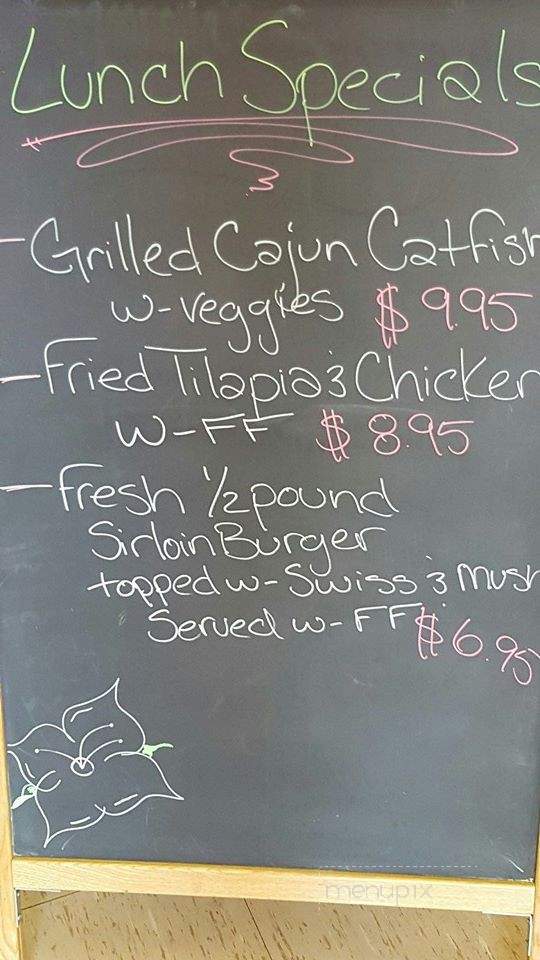 Lunch Specials
- Grilled Cajun Catfish
w-veggies $ 9.95
- Fried Tilapia & Chicken
w-FF $ 8.95
- Fresh 1/2 pound
Sirloin Burger
topped w-Swiss & Mush
Served w-FF $6.95
menupix